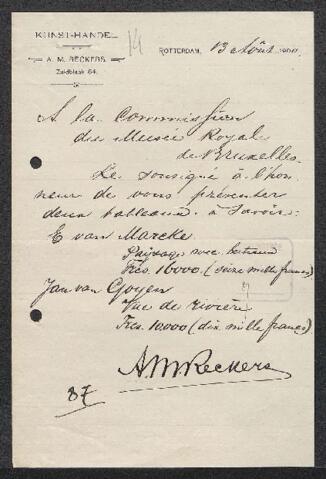 KUNST-HANDEL
A. M. RECKERS.
Zuidblaak 64.
14
ROTTERDAM, 13 Août 1900
A la Commission
du Musée Royal
de Bruxelles.
Le sousigné à l'hon
neur de vous présenter
deux tableaux à savoir:
E van Marcke
Paysage avec betreaux
Frcs. 16000 (seize mille francs)
Jan van Goyen
Vue de rivière
Frcs. 10.000 (dix mille francs)
AMReckers
87